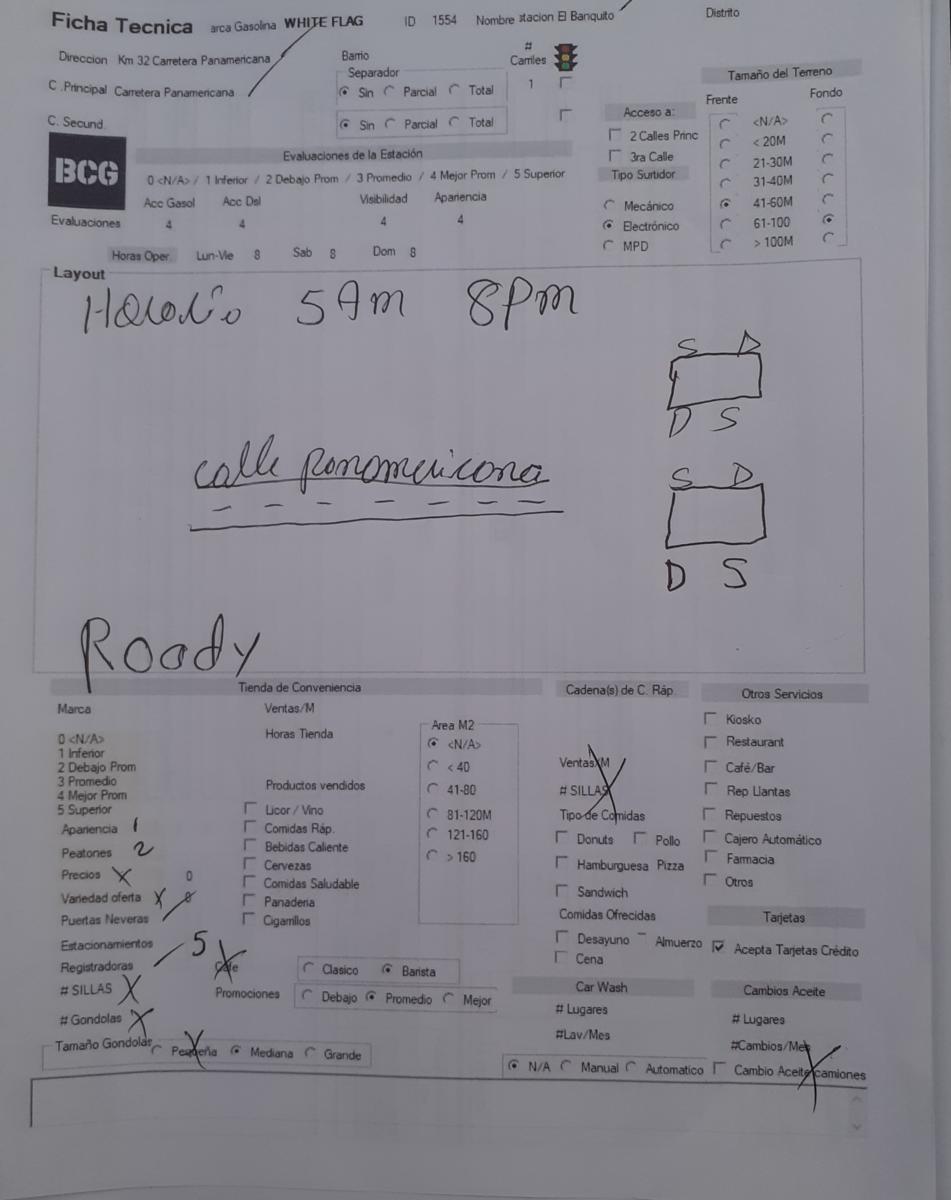 Ficha Tecnica arca Gasolina WHITE FLAG ID 1554 Nombre stacion El Banquito Distrito
Direccion Km 32 Carretera Panamericana Barrio # Carriles
C .Principal Carretera Panamericana Separador
Sin Parcial Total 1
C. Secund. Sin Parcial Total
Tamaño del Terreno
Frente Fondo
<N/A>
< 20M
21-30M
31-40M
41-60M
61-100
> 100M
Acceso a:
2 Calles Princ
3ra Calle
Tipo Surtidor
Mecánico
Electrónico
MPD
BCG
Evaluaciones de la Estación
0 <N/A> / 1 Inferior / 2 Debajo Prom / 3 Promedio / 4 Mejor Prom / 5 Superior
Acc Gasol Acc Dsl Visibilidad Apariencia
Evaluaciones 4 4 4 4
Horas Oper. Lun-Vie 8 Sab 8 Dom 8
Layout
Horario 5 Am 8 Pm
S D
D S
calle panamericana
S D
D S
Roody
Tienda de Conveniencia
Marca Ventas/M
Horas Tienda
0 <N/A>
1 Inferior
2 Debajo Prom
3 Promedio
4 Mejor Prom
5 Superior
Apariencia 1
Peatones 2
Precios X 0
Variedad oferta X
Puertas Neveras
Estacionamientos 5
Registradoras
# SILLAS X
# Gondolas X
Tamaño Gondolas Pequeña Mediana Grande
Productos vendidos
Licor / Vino
Comidas Ráp.
Bebidas Caliente
Cervezas
Comidas Saludable
Panaderia
Cigarrillos
Area M2
<N/A>
< 40
41-80
81-120M
121-160
> 160
Cafe Clasico Barista
Promociones Debajo Promedio Mejor
Cadena(s) de C. Ráp.
Ventas/M
# SILLAS
Tipo de Comidas
Donuts Pollo
Hamburguesa Pizza
Sandwich
Comidas Ofrecidas
Desayuno Almuerzo
Cena
Car Wash
# Lugares
#Lav/Mes
N/A Manual Automatico
Otros Servicios
Kiosko
Restaurant
Café/Bar
Rep Llantas
Repuestos
Cajero Automático
Farmacia
Otros
Tarjetas
Acepta Tarjetas Crédito
Cambios Aceite
# Lugares
#Cambios/Mes
Cambio Aceite camiones